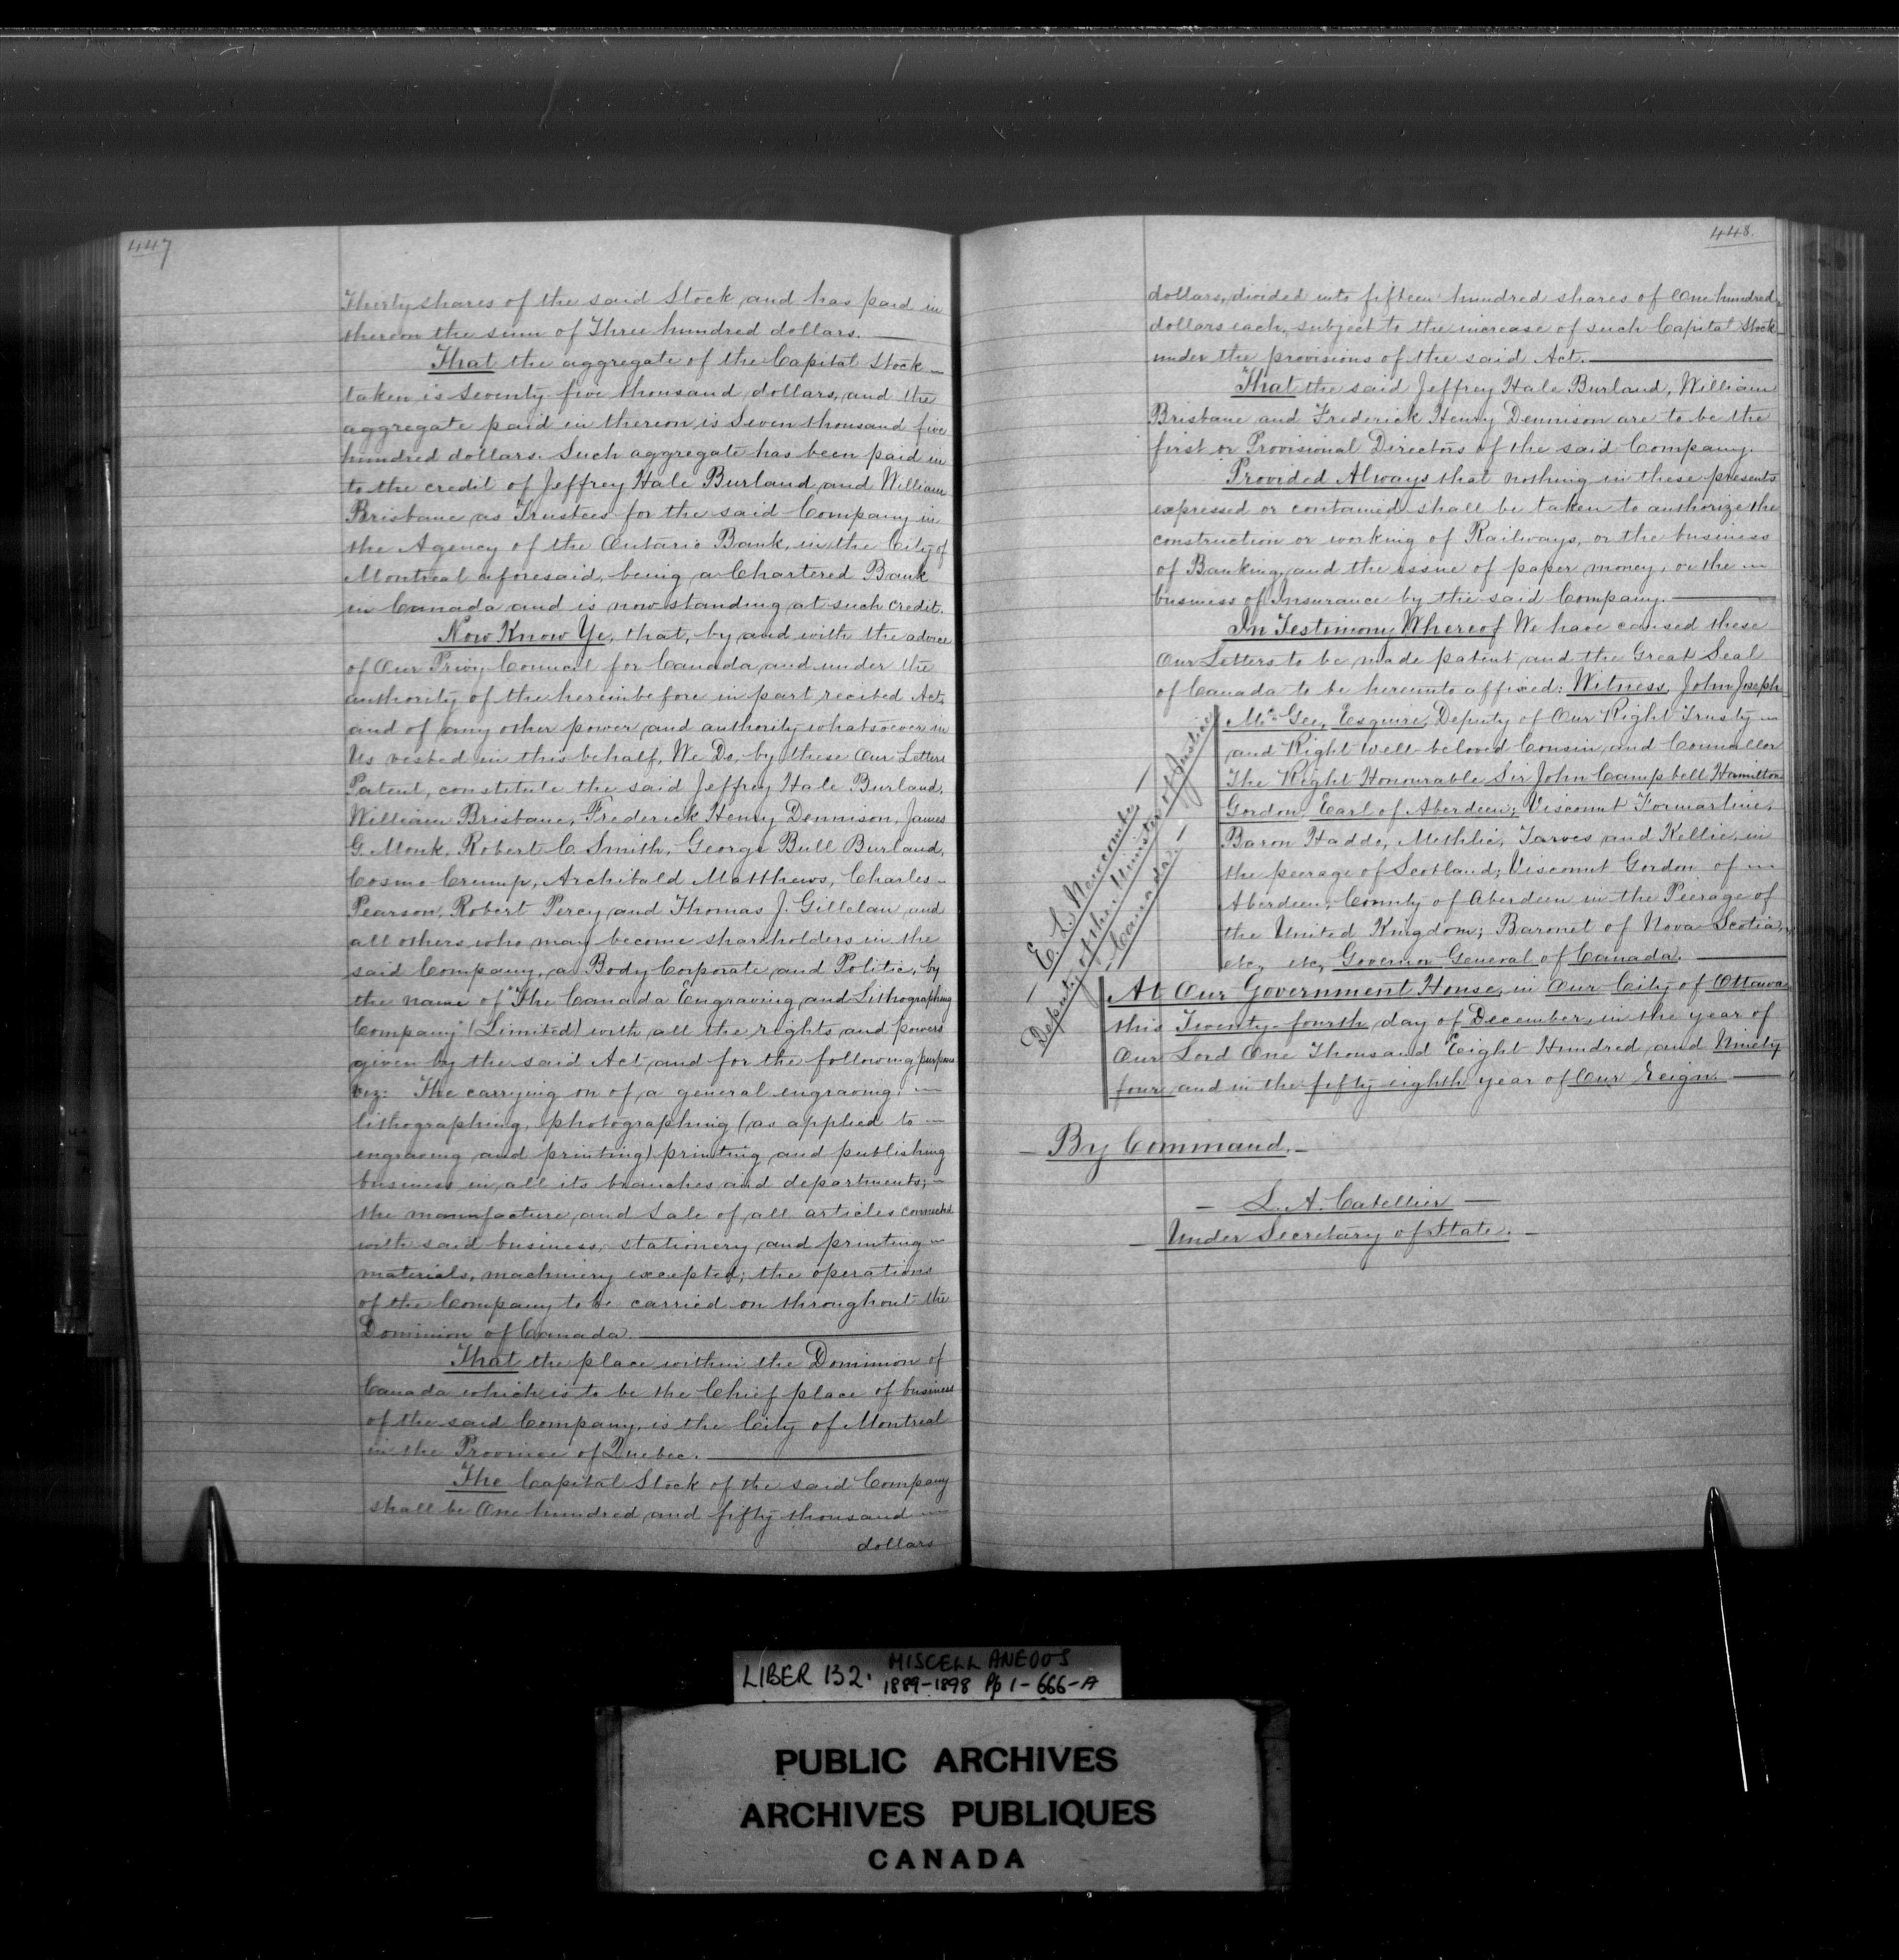 447
Thirty shares of the said Stock and has paid in
thereon the sum of Three hundred dollars.
That the aggregate of the Capital Stock
taken is Seventy five thousand dollars, and the
aggregate paid in thereon is Seven thousand five
hundred dollars. Such aggregate has been paid in
to the credit of Jeffrey Hale Burland and William
Brisbane as Trustees for the said Company in
the Agency of the Ontario Bank, in the City of
Montreal aforesaid, being a Chartered Bank
in Canada and is now standing at such credit.
Now Know Ye, that, by and with the advice
of Our Privy Council for Canada and under the
authority of the hereinbefore in part recited Act,
and of any other power and authority whatsoever in
Us vested in this behalf, We Do, by these Our Letters
Patent, constitute the said Jeffrey Hale Burland,
William Brisbane, Frederick Henry Dennison, James
G. Monk, Robert C. Smith, George Bull Burland,
Cosmo Crump, Archibald Matthews, Charles
Pearson, Robert Percy and Thomas J. Gillelan and
all others who may become shareholders in the
said Company, a Body Corporate and Politic, by
the name of "The Canada Engraving and Lithographing
Company" (Limited) with all the rights and powers
given by the said Act and for the following purposes
viz: The carrying on of a general engraving,
lithographing, photographing (as applied to
engraving and printing) printing and publishing
business in all its branches and departments;
the manufacture and sale of all articles connected
with said business, stationery and printing
materials, machinery excepted; the operations
of the Company to be carried on throughout the
Dominion of Canada.
That the place within the Dominion of
Canada which is to be the Chief place of business
of the said Company, is the City of Montreal
in the Province of Quebec.
The Capital Stock of the said Company
shall be One hundred and fifty thousand
dollars
448.
dollars, divided into fifteen hundred shares of One hundred
dollars each, subject to the increase of such Capital Stock
under the provisions of the said Act.
That the said Jeffrey Hale Burland, William
Brisbane and Frederick Henry Dennison are to be the
first or Provisional Directors of the said Company.
Provided Always that nothing in these presents
expressed or contained shall be taken to authorize the
construction or working of Railways, or the business
of Banking and the issue of paper money, or the
business of Insurance by the said Company.
In Testimony Whereof We have caused these
Our Letters to be made patent and the Great Seal
of Canada to be hereunto affixed: Witness, John Joseph
McGee, Esquire, Deputy of Our Right Trusty
and Right Well-beloved Cousin and Councillor
The Right Honourable Sir John Campbell Hamilton
Gordon, Earl of Aberdeen; Viscount Formartine,
Baron Haddo, Methlic, Tarves and Kellie, in
the peerage of Scotland; Viscount Gordon of
Aberdeen, County of Aberdeen in the Peerage of
the United Kingdom; Baronet of Nova Scotia,
etc, etc, Governor General of Canada.
E. L. Newcombe
Deputy of the Minister of Justice
Canada
At Our Government House, in Our City of Ottawa
this Twenty-fourth day of December, in the year of
Our Lord One Thousand Eight Hundred and Ninety
four and in the fifty eighth year of Our Reign.
By Command.
L. A. Catellier
Under Secretary of State.
LIBER 132. MISCELLANEOUS
1889-1898 Pp 1-666-A
PUBLIC ARCHIVES
ARCHIVES PUBLIQUES
CANADA